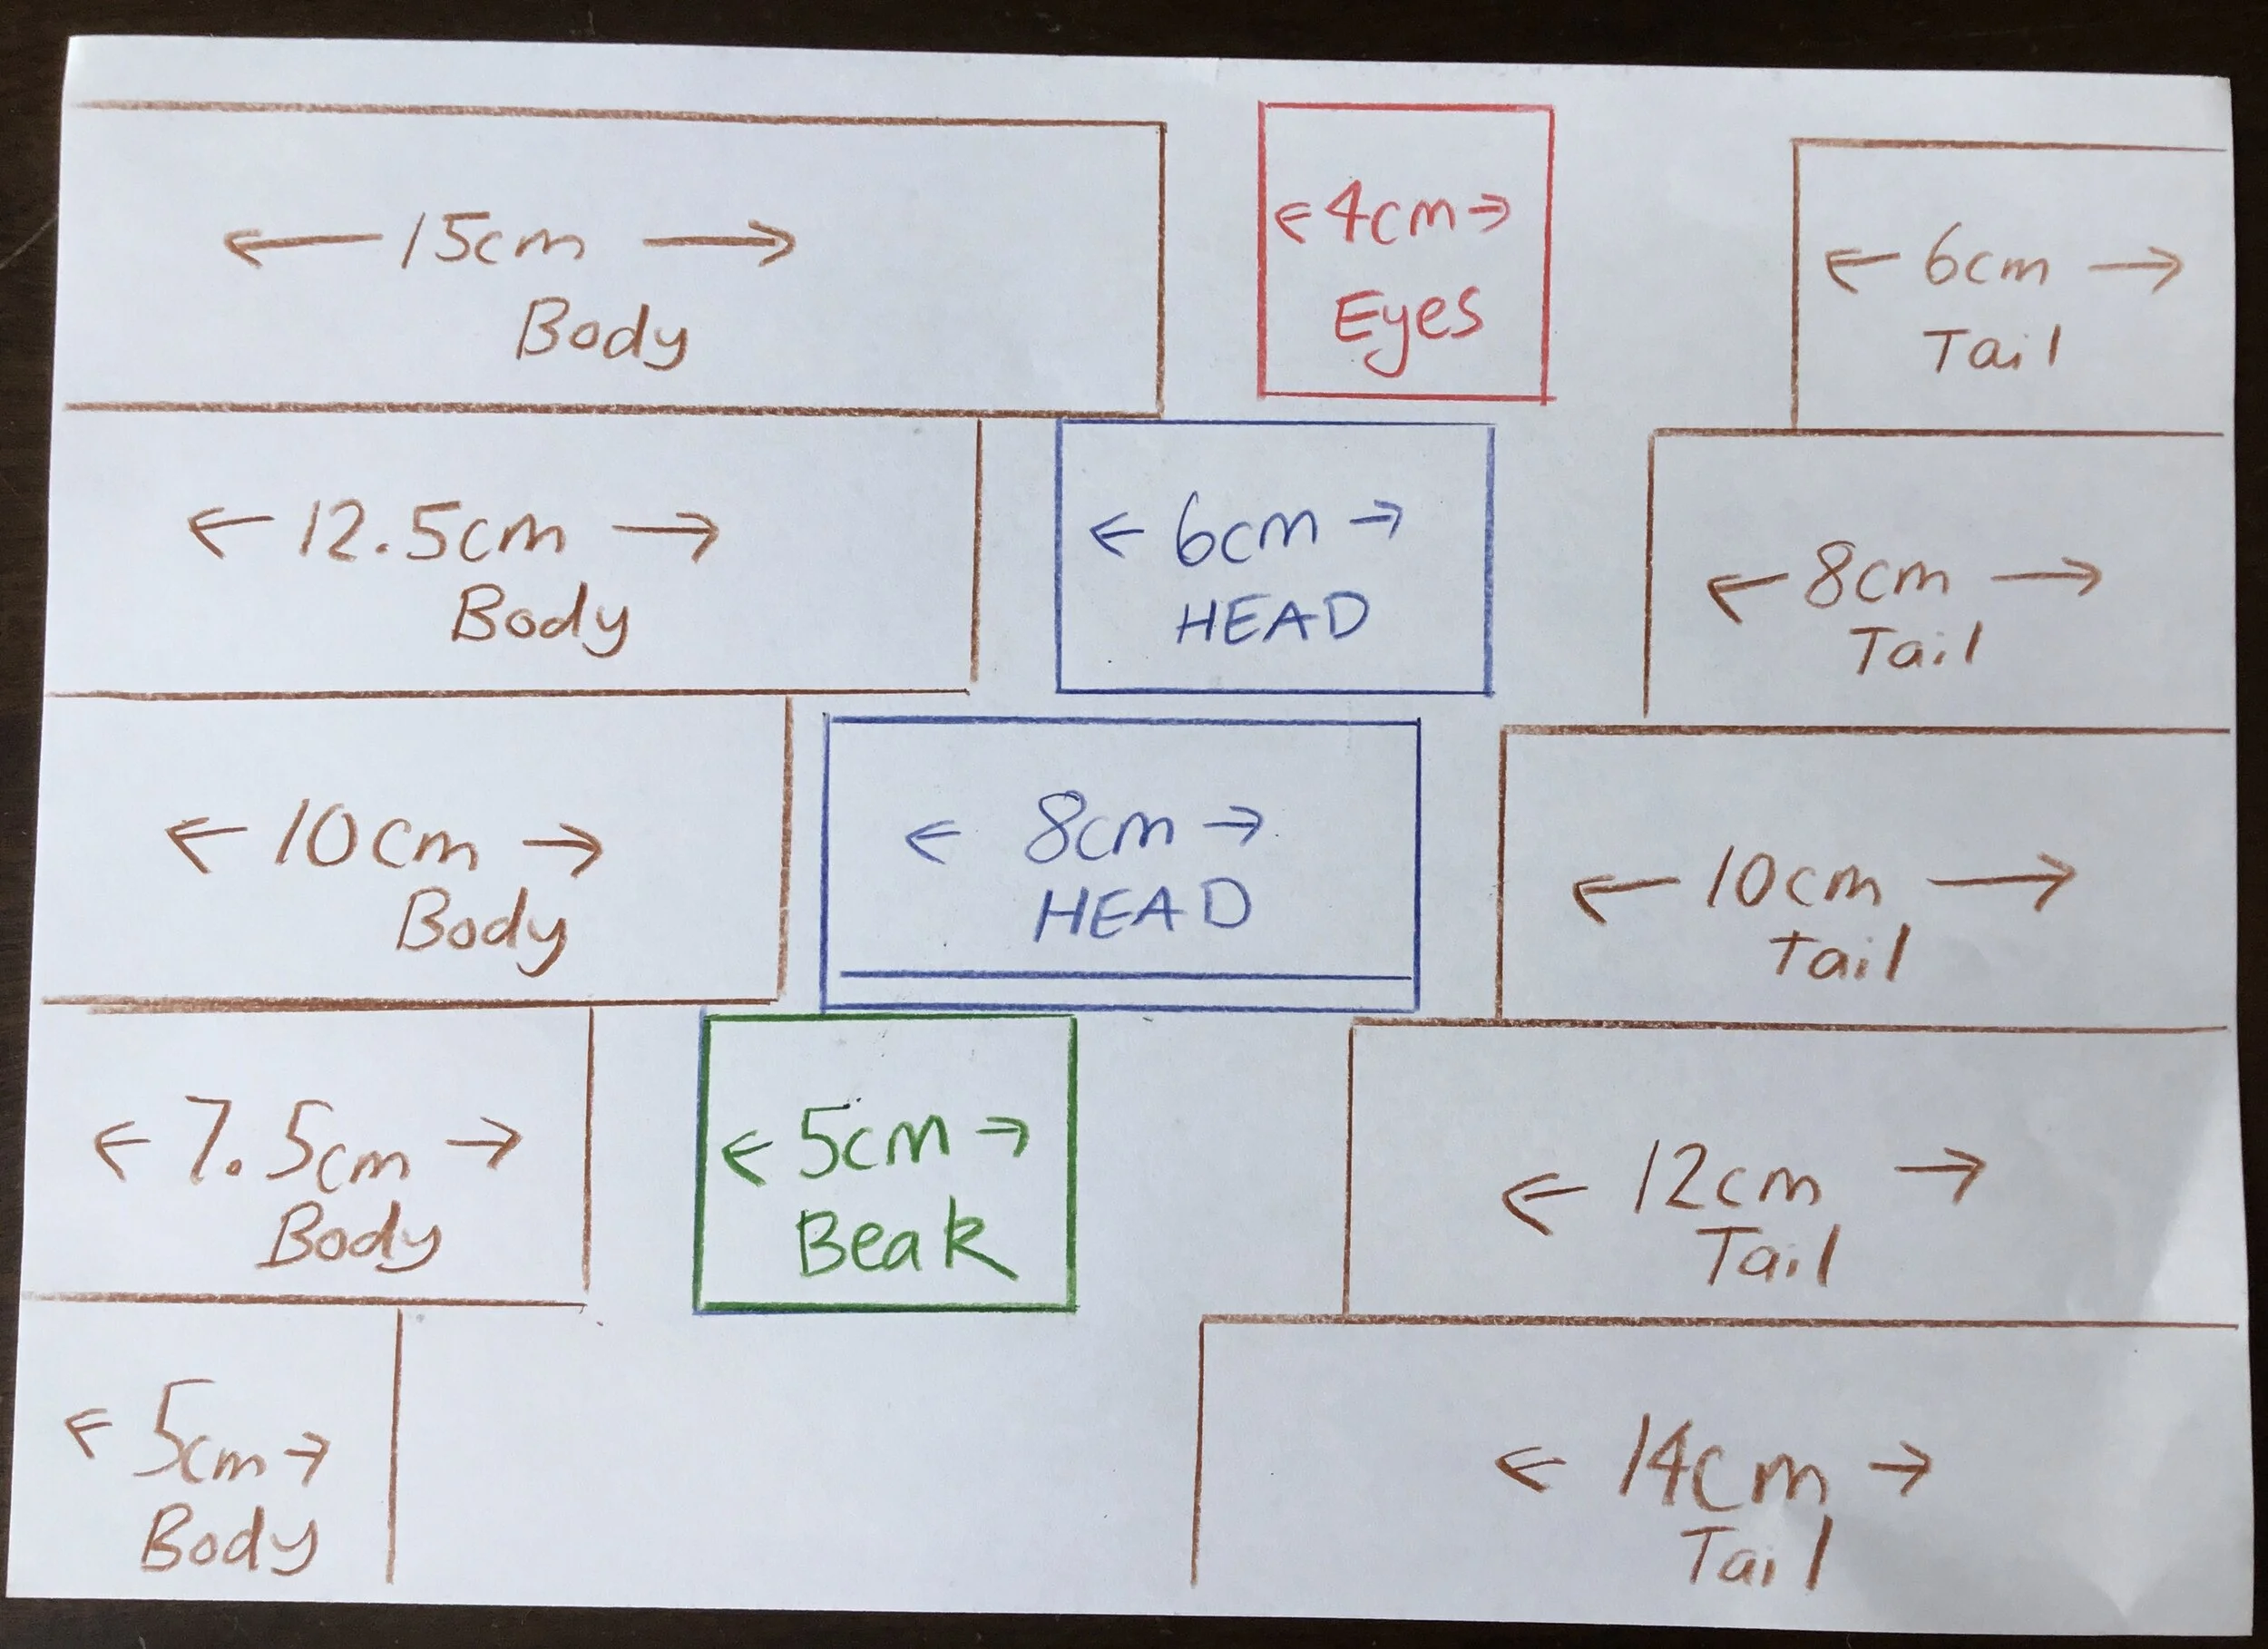 15cm
Body
4cm
Eyes
6cm
Tail
12.5cm
Body
6cm
HEAD
8cm
Tail
10cm
Body
8cm
HEAD
10cm
Tail
7.5cm
Body
5cm
Beak
12cm
Tail
5cm
Body
14cm
Tail